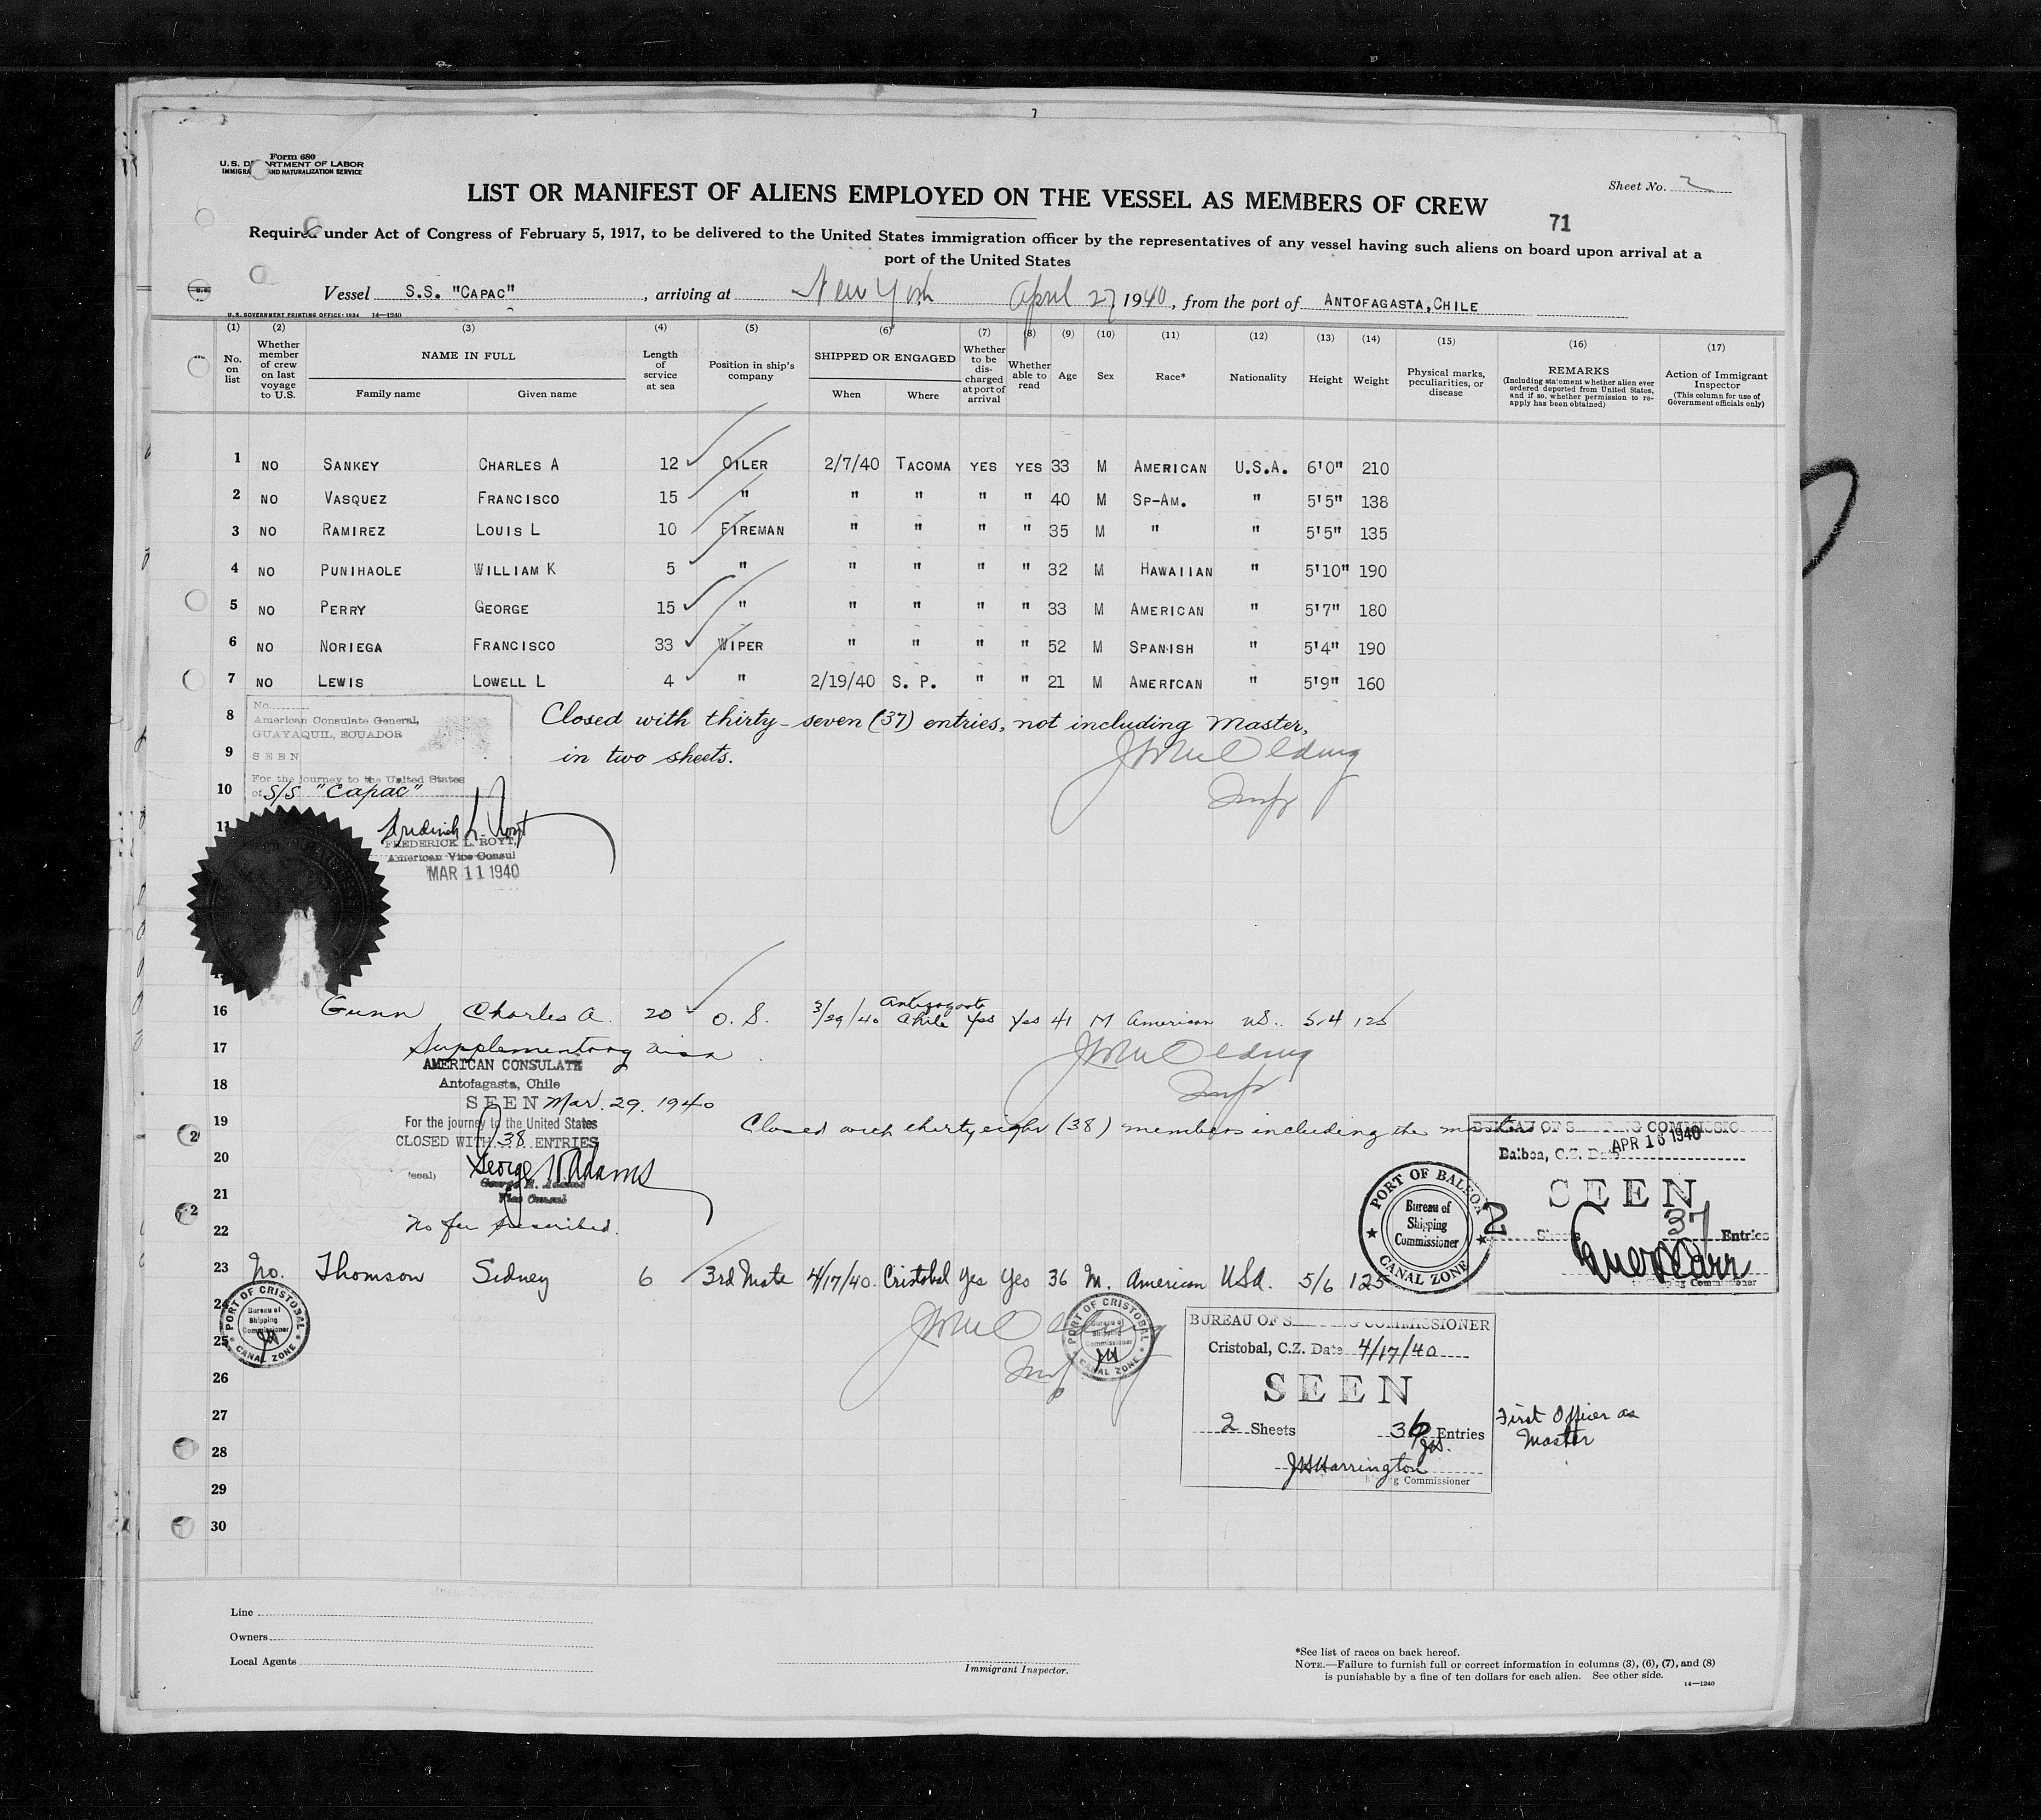 Form 680
U.S. DEPARTMENT OF LABOR
IMMIGRA AND NATURALIZATION SERVICE
Sheet No. 2
LIST OR MANIFEST OF ALIENS EMPLOYED ON THE VESSEL AS MEMBERS OF CREW
71
Required under Act of Congress of February 5, 1917, to be delivered to the United States immigration officer by the representatives of any vessel having such aliens on board upon arrival at a
port of the United States
Vessel S.S. "CAPAC", arriving at New York April 27 1940, from the port of ANTOFAGASTA, CHILE
U. S. GOVERNMENT PRINTING OFFICE: 1934 14—1240
(1) (2) (3) (4) (5) (6) (7) (8) (9) (10) (11) (12) (13) (14) (15) (16) (17)
No. on list
Whether member of crew on last voyage to U.S.
NAME IN FULL
Family name Given name
Length of service at sea
Position in ship's company
SHIPPED OR ENGAGED
When Where
Whether to be discharged at port of arrival
Whether able to read
Age Sex Race* Nationality Height Weight
Physical marks, peculiarities, or disease
REMARKS
(Including statement whether alien ever ordered deported from United States, and if so, whether permission to reapply has been obtained)
Action of Immigrant Inspector
(This column for use of Government officials only)
1 NO SANKEY CHARLES A 12 OILER 2/7/40 TACOMA YES YES 33 M AMERICAN U.S.A. 6'0" 210
2 NO VASQUEZ FRANCISCO 15 " " " " " 40 M SP-AM. " 5'5" 138
3 NO RAMIREZ LOUIS L 10 FIREMAN " " " " 35 M " " 5'5" 135
4 NO PUNIHAOLE WILLIAM K 5 " " " " " 32 M HAWAIIAN " 5'10" 190
5 NO PERRY GEORGE 15 " " " " " 33 M AMERICAN " 5'7" 180
6 NO NORIEGA FRANCISCO 33 WIPER " " " " 52 M SPANISH " 5'4" 190
7 NO LEWIS LOWELL L 4 " 2/19/40 S. P. " " 21 M AMERICAN " 5'9" 160
8 Closed with thirty-seven (37) entries, not including Master,
9 in two sheets.
10
11
No.
American Consulate General,
GUAYAQUIL, ECUADOR
SEEN
For the journey to the United States
of S/S "Capac"
FREDERICK L. ROYT,
American Vice Consul
MAR 11 1940
16 Gunn Charles A. 20 O. S. 3/29/40 Antofagasta Chile Yes Yes 41 M American US. 5-4 125
17 Supplementary visa
18
AMERICAN CONSULATE
Antofagasta, Chile
SEEN Mar. 29, 1940
For the journey to the United States
CLOSED WITH 38 ENTRIES
19 Closed with thirty eight (38) members including the master
20
(seal)
George H. Adams
George H. Adams
Vice Consul
21
22 No fee prescribed.
BUREAU OF S PING COMMISSIO
Balboa, C.Z. Date APR 16 1940
SEEN
2 Sheets 37 Entries
Commissioner
PORT OF BALBOA
Bureau of Shipping Commissioner
CANAL ZONE
23 No. Thomson Sidney 6 3rd Mate 4/17/40. Cristobal Yes Yes 36 M. American USA. 5/6 125
24
25
26
27
28
29
30
PORT OF CRISTOBAL
Bureau of Shipping Commissioner
CANAL ZONE
PORT OF CRISTOBAL
Bureau of Shipping Commissioner
CANAL ZONE
BUREAU OF S NG COMMISSIONER
Cristobal, C.Z. Date 4/17/40
SEEN
2 Sheets 36 Entries
JHHarrington
Commissioner
First Officer as
Master
Line
Owners
Local Agents
Immigrant Inspector.
*See list of races on back hereof.
NOTE.—Failure to furnish full or correct information in columns (3), (6), (7), and (8)
is punishable by a fine of ten dollars for each alien. See other side.
14—1240